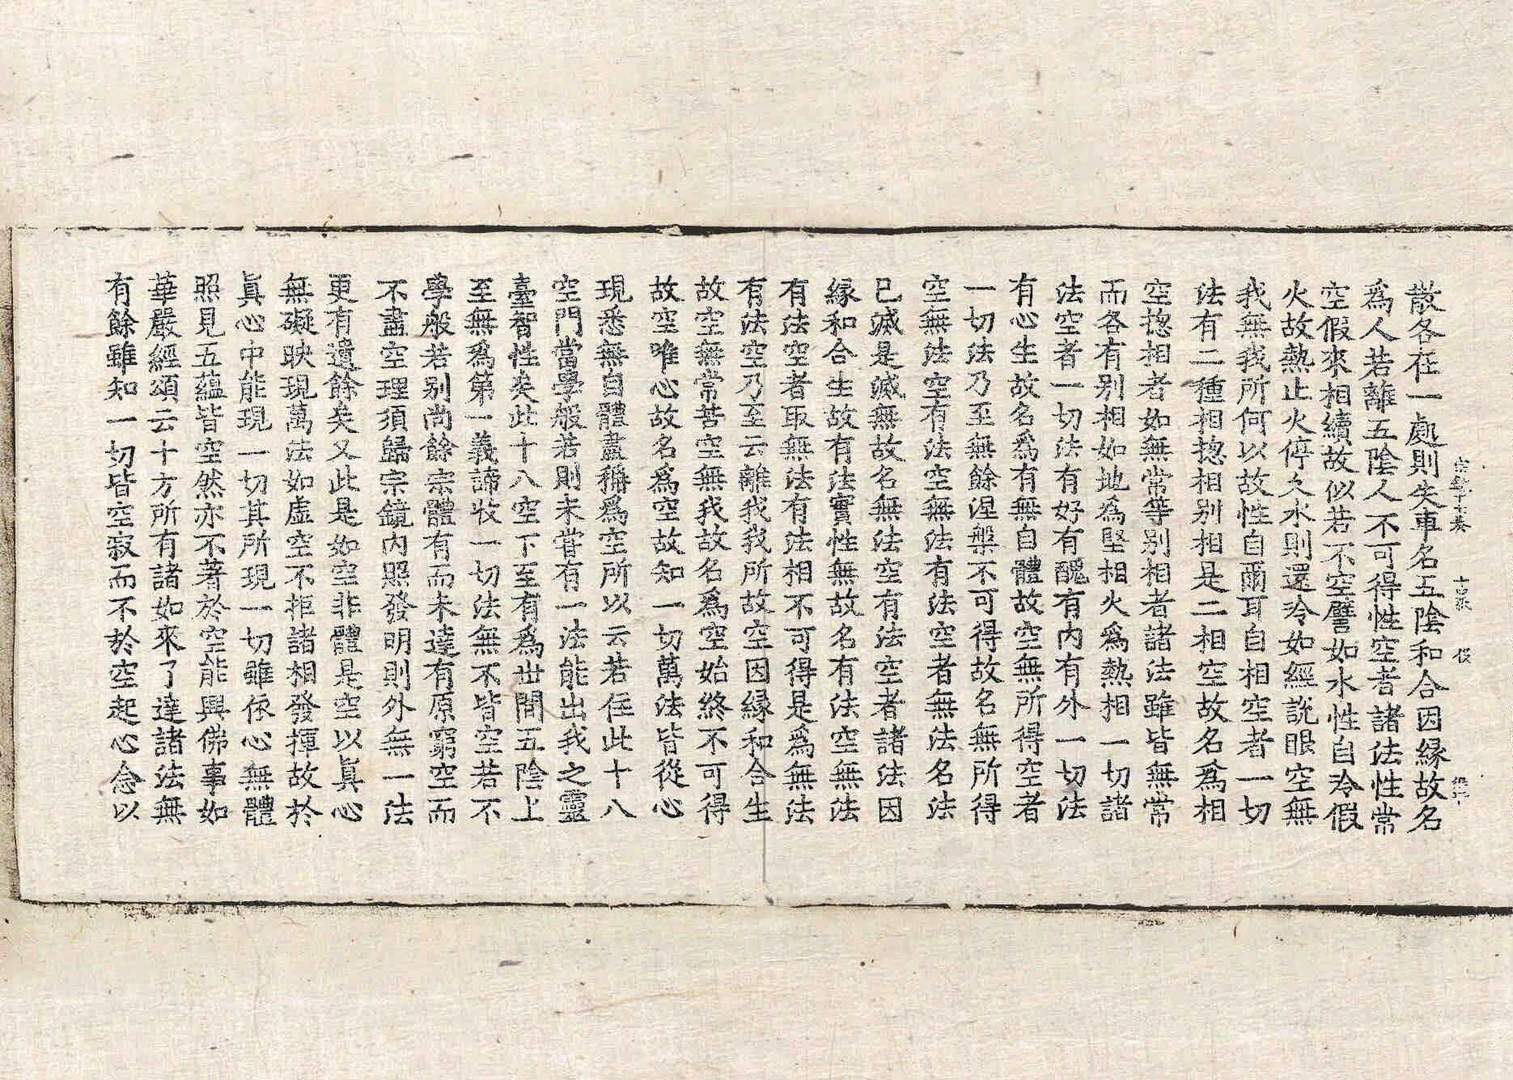 散各在一處則失車名五陰和合因縁故名
爲人若離五陰人不可得性空者諸法性常
空假來相續故似若不空譬如水性自冷假
火故熱止火停久水則還冷如經說眼空無
我無我所何以故性自爾耳自相空者一切
法有二種相揔相别相是二相空故名爲相
空揔相者如無常等别相者諸法雖皆無常
而各有别相如地爲堅相火爲熱相一切諸
法空者一切法有好有醜有内有外一切法
有心生故名爲有無自體故空無所得空者
一切法乃至無餘涅槃不可得故名無所得
空無法空有法空無法有法空者無法名法
已滅是滅無故名無法空有法空者諸法因
縁和合生故有法實性無故名有法空無法
有法空者取無法有法相不可得是爲無法
有法空乃至云離我我所故空因縁和合生
故空無常苦空無我故名爲空始終不可得
故空唯心故名爲空故知一切萬法皆從心
現悉無自體盡稱爲空所以云若住此十八
空門當學般若則未嘗有一法能出我之靈
臺智性矣此十八空下至有爲世間五陰上
至無爲第一義諦收一切法無不皆空若不
學般若别尚餘宗體有而未達有原窮空而
不盡空理須歸宗鏡内照發明則外無一法
更有遺餘矣又此是如空非體是空以眞心
無礙映現萬法如虚空不拒諸相發揮故於
眞心中能現一切其所現一切雖依心無體
照見五蘊皆空然亦不著於空能興佛事如
華嚴經頌云十方所有諸如來了達諸法無
有餘雖知一切皆空寂而不於空起心念以